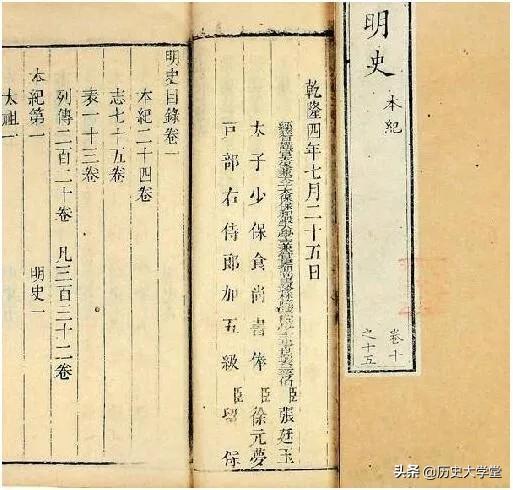 明史
本紀
卷十
之十五
乾隆四年七月二十五日
臣張廷玉
太子少保食尚書俸臣徐元夢
戶部右侍郎加五級臣留保
明史目錄卷一
本紀二十四卷
志七十五卷
表一十三卷
列傳二百二十卷 凡三百三十二卷
本紀第一 明史一
太祖一
头条 @历史大学堂